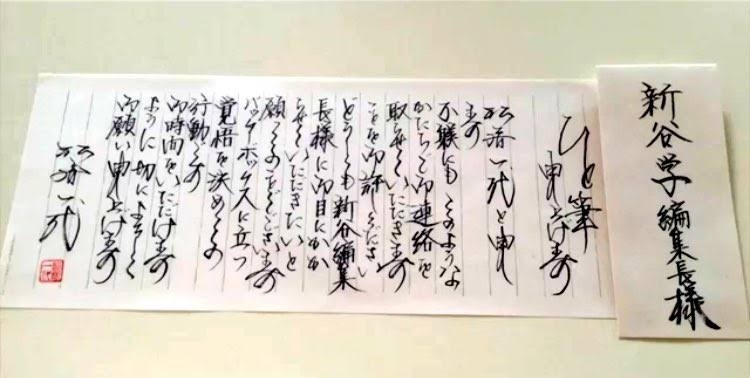 新谷学編集長様
ひと筆
申し上げます
松居一代と申し
ます
不躾にもこのような
かたちで御連絡を
取らせていただきます
ことを御許しください
どうしても新谷編集
長様に御目にかか
らせていただきたいと
願ってのことでございます
バッターボックスに立つ
覚悟を決めての
行動です
御時間をいただけます
ように切によろしく
御願い申し上げます
松居一代